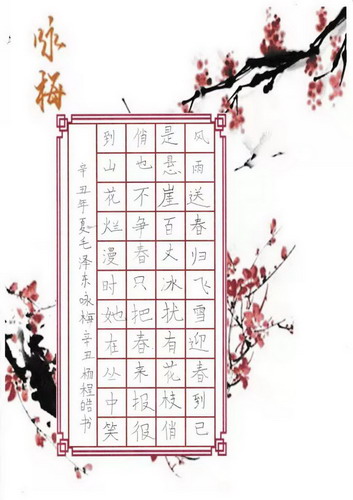 咏梅
风雨送春归飞雪迎春到已
是悬崖百丈冰扰有花枝俏
俏也不争春只把春来报很
到山花烂漫时她在丛中笑
辛丑年夏毛泽东咏梅辛丑杨程皓书